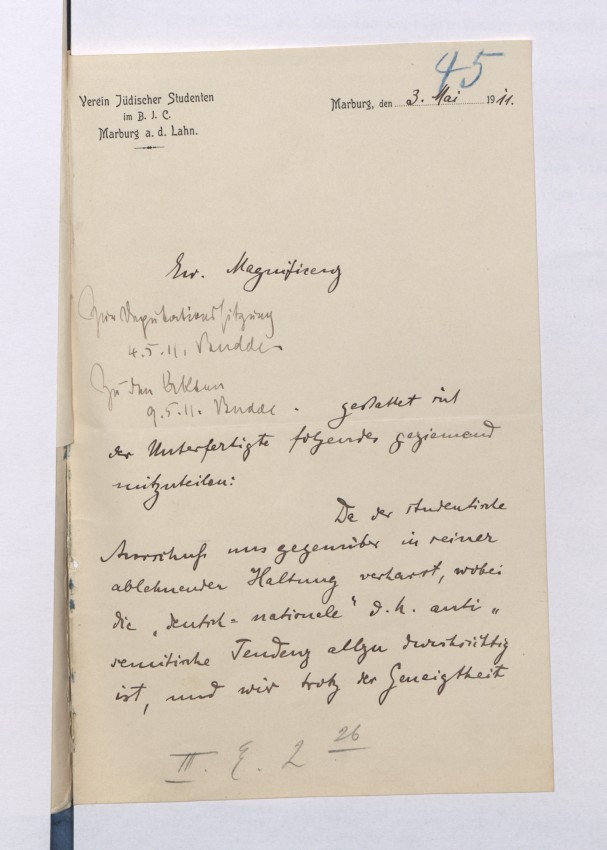 45
Verein Jüdischer Studenten
im B. J. C.
Marburg a. d. Lahn.
Marburg, den 3. Mai 1911.
Ew. Magnifizenz
Zur Deputationssitzung
4.5.11. Budde
Zu den Akten
9.5.11. Budde.
gestattet sich
der Unterfertigte folgendes geziemend
mitzuteilen:
Da der studentische
Ausschuß uns gegenüber in seiner
ablehnenden Haltung verharrt, wobei
die „deutsch=nationale" d. h. anti„
semitische Tendenz allzu durchsichtig
ist, und wir trotz der Geneigtheit
III. E. 2 26